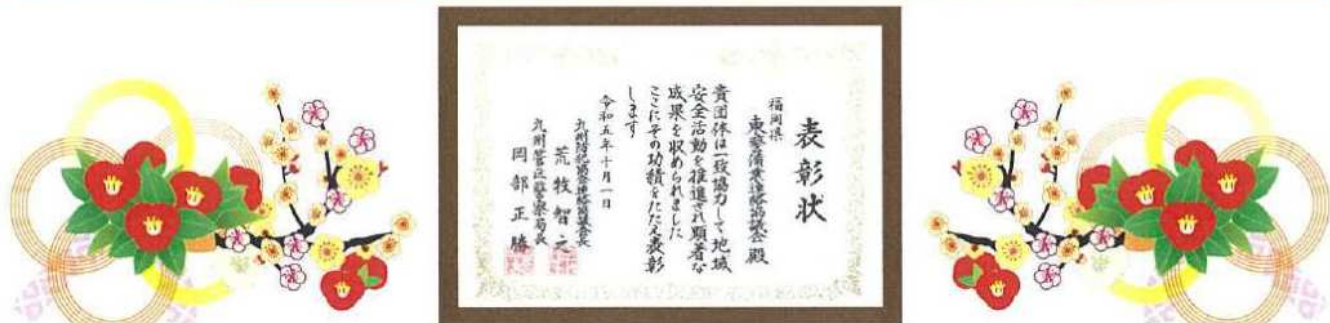 表彰状
福岡県
東警濱業連絡協議会 殿
貴団体は一致協力して地域
安全活動を推進され顕著な
成果を収められました
ここにその功績をたたえ表彰
します
令和五年十月一日
九州防犯協会連絡協議会長
荒牧智之
九州管区警察局長
岡部正勝